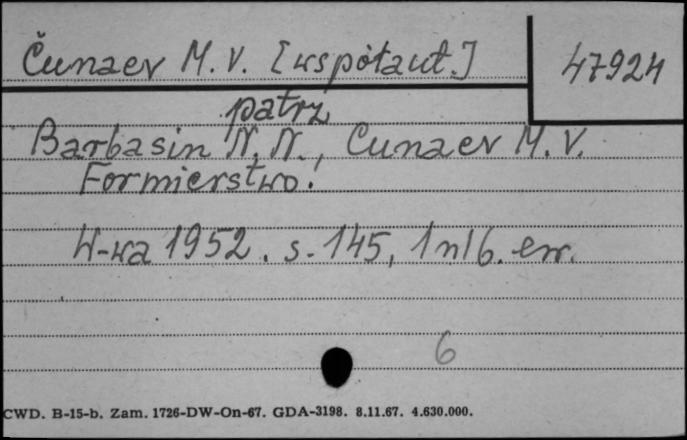 Čunaev M. V. [współaut.]
47924
patrz
Barbasin N. N., Cunaev M. V.
Formierstwo.
W-wa 1952. s. 145, 1 nlb. err.
6
CWD. B-15-b. Zam. 1726-DW-On-67. GDA-3198. 8.11.67. 4.630.000.